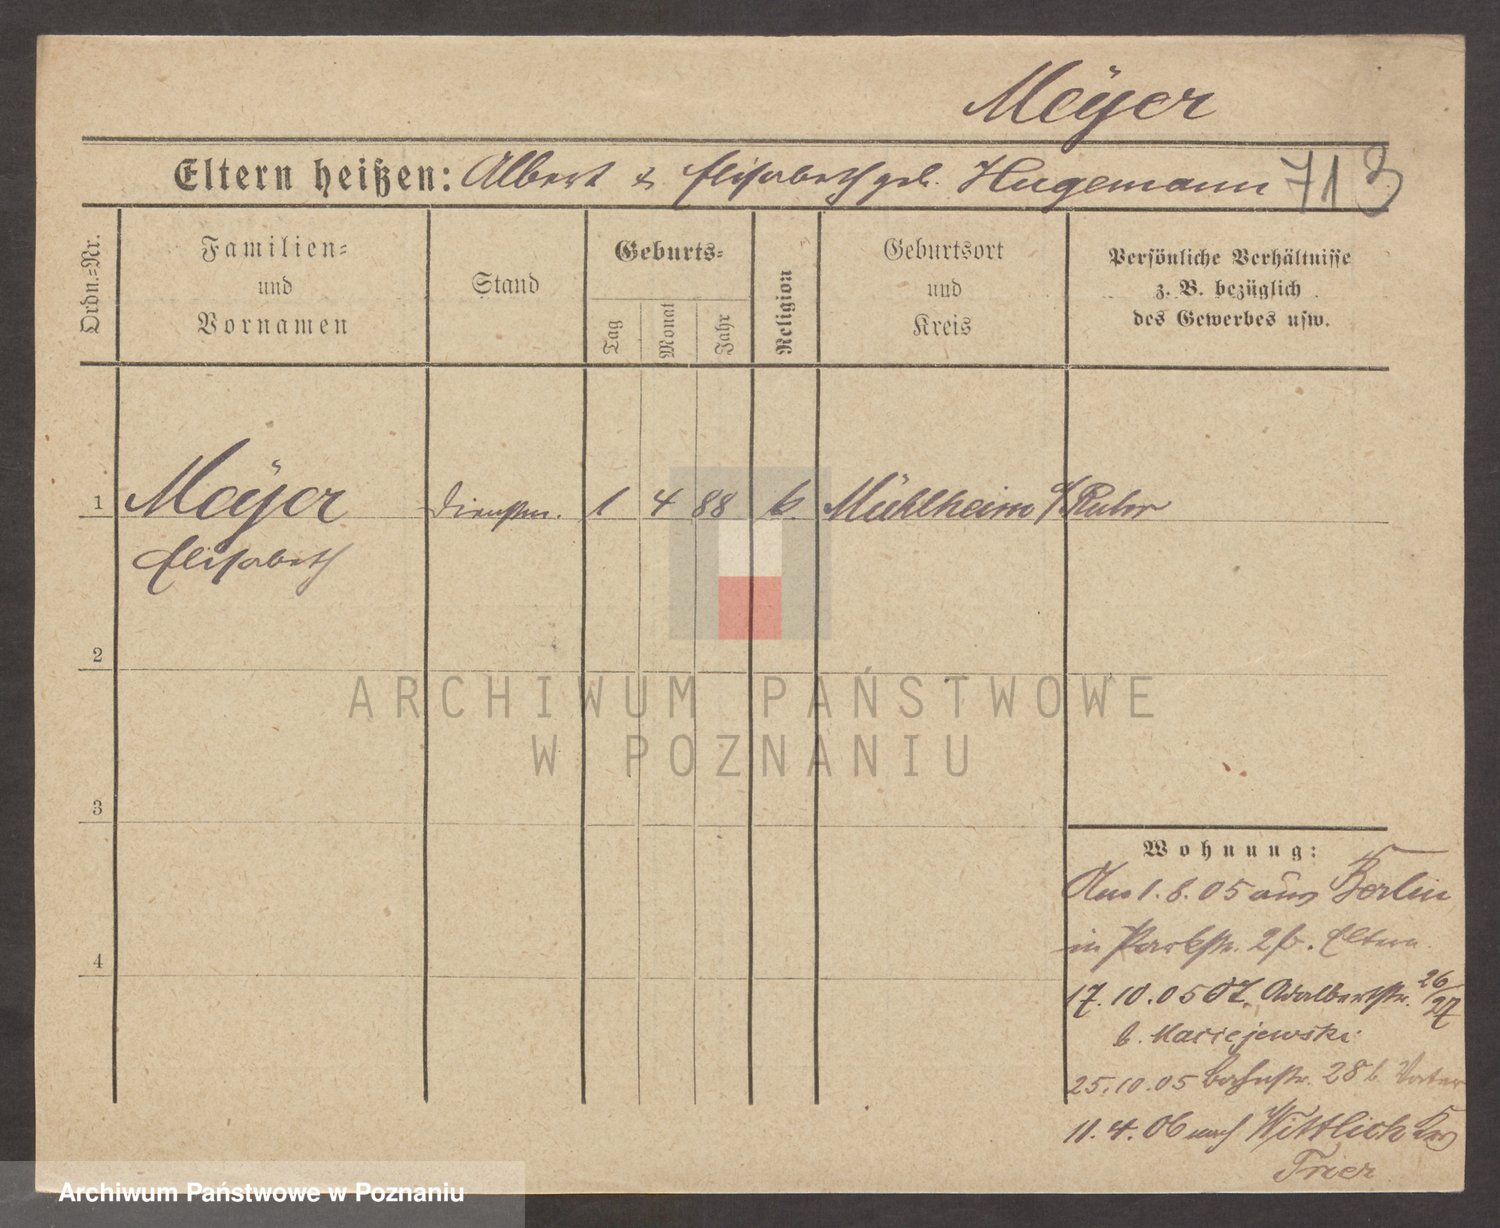 Meÿer
Eltern heißen: Albert & Elisabeth geb. Hugemann 713
Ordn.=Nr.
Familien=
und
Vornamen
Stand
Geburts=
Tag
Monat
Jahr
Religion
Geburtsort
und
Kreis
Persönliche Verhältnisse
z. B. bezüglich
des Gewerbes usw.
1 Meÿer Dienstm. 1 4 88 k. Mühlheim a/Ruhr
Elisabeth
2
3
4
Wohnung:
1.8.05 aus Berlin
in Parkstr. 2 b. Eltern
17.10.05 Adalbertstr. 26/27
b. Maciejewski
25.10.05 Bahnstr. 28 b. Vater
11.4.06 nach Wittlich Krs
Trier
ARCHIWUM PAŃSTWOWE
W POZNANIU
Archiwum Państwowe w Poznaniu